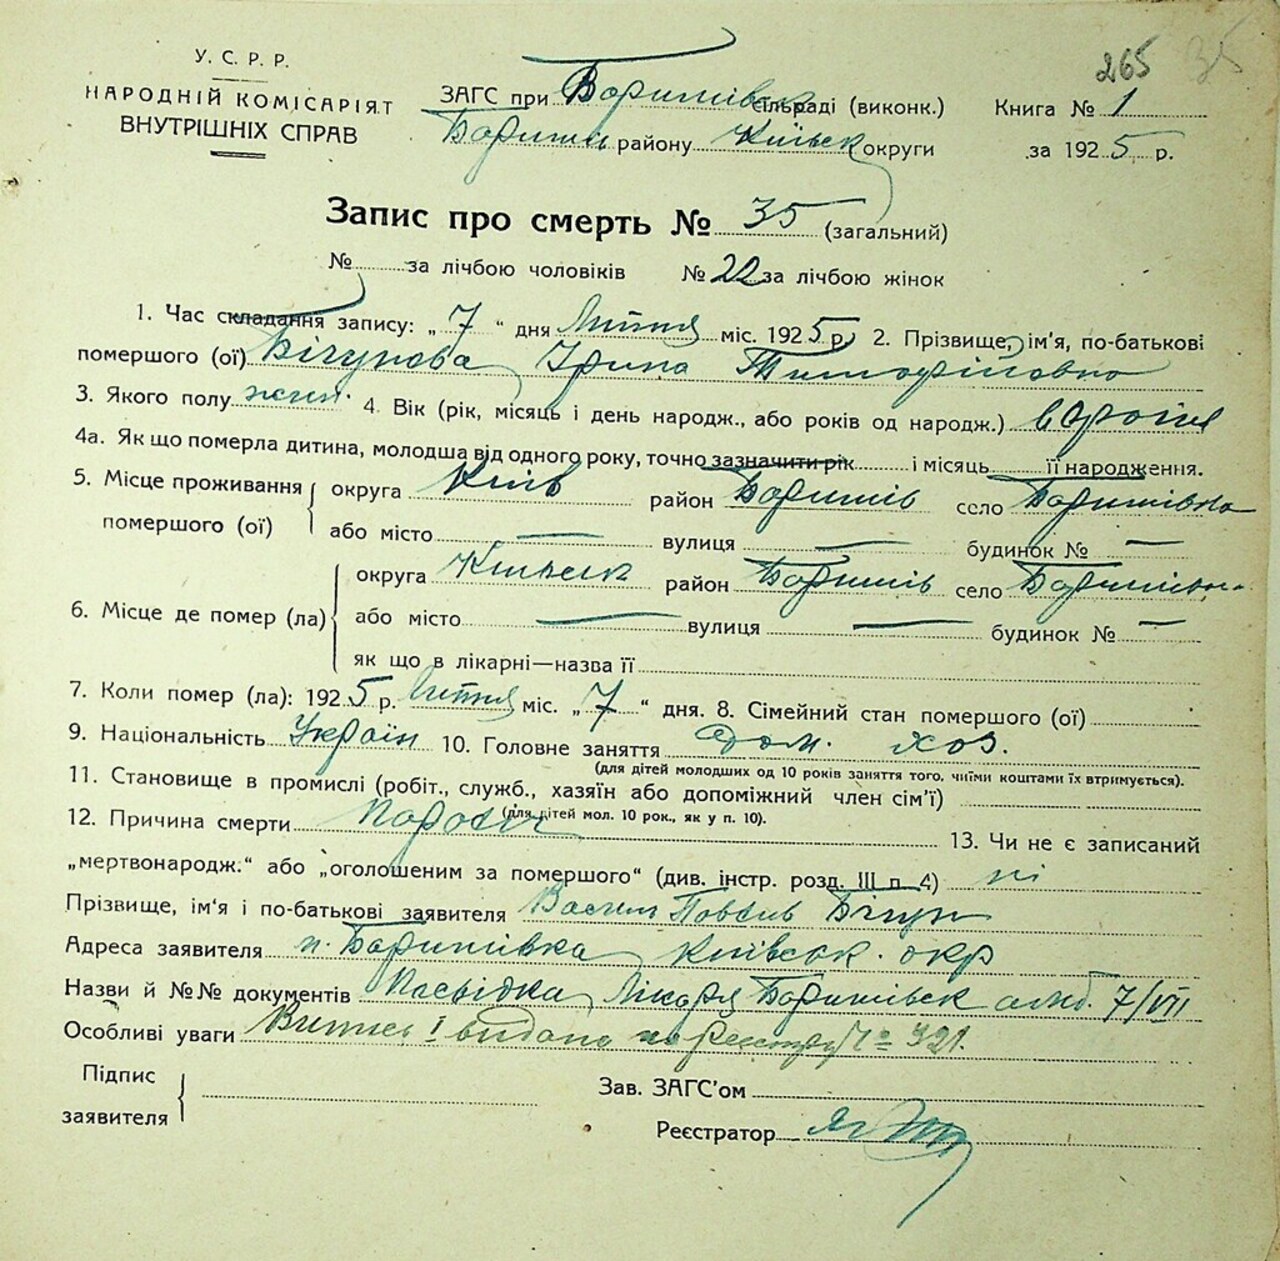 265 35
У. С. Р. Р.
НАРОДНІЙ КОМІСАРІЯТ
ВНУТРІШНІХ СПРАВ
ЗАГС при Баришівськ сільраді (виконк.) Книга № 1
Баришів району Київськ округи за 1925 р.
Запис про смерть № 35 (загальний)
№ за лічбою чоловіків № 22 за лічбою жінок
1. Час складання запису: „ 7 “ дня Липня міс. 1925 р. 2. Прізвище, ім'я, по-батькові
помершого (ої) Бігунова Ірина Тимофійовна
3. Якого полу жін. 4. Вік (рік, місяць і день народж., або років од народж.)
4а. Як що померла дитина, молодша від одного року, точно зазначити рік і місяць її народження.
5. Місце проживання помершого (ої) округа Київ район Баришів село Баришівка
або місто — вулиця — будинок № —
6. Місце де помер (ла) округа Київськ район Баришів село Баришівк
або місто — вулиця — будинок № —
як що в лікарні—назва її
7. Коли помер (ла): 1925 р. липня міс. „ 7 “ дня. 8. Сімейний стан помершого (ої)
9. Національність Україн 10. Головне заняття дом. хоз.
(для дітей молодших од 10 років заняття того, чиїми коштами їх втримується).
11. Становище в промислі (робіт., служб., хазяїн або допоміжний член сім'ї)
(для дітей мол. 10 рок., як у п. 10).
12. Причина смерти 13. Чи не є записаний
„мертвонародж.“ або „оголошеним за помершого“ (див. інстр. розд. III п. 4) ні
Прізвище, ім'я і по-батькові заявителя Василь Бігун
Адреса заявителя м. Баришівка Київськ. окр
Назви й №№ документів Посвідка Лікаря Баришівськ амб. 7/VII
Особливі уваги Випись і видано по Реєстру № 321.
Підпис заявителя
Зав. ЗАГС'ом
Реєстратор